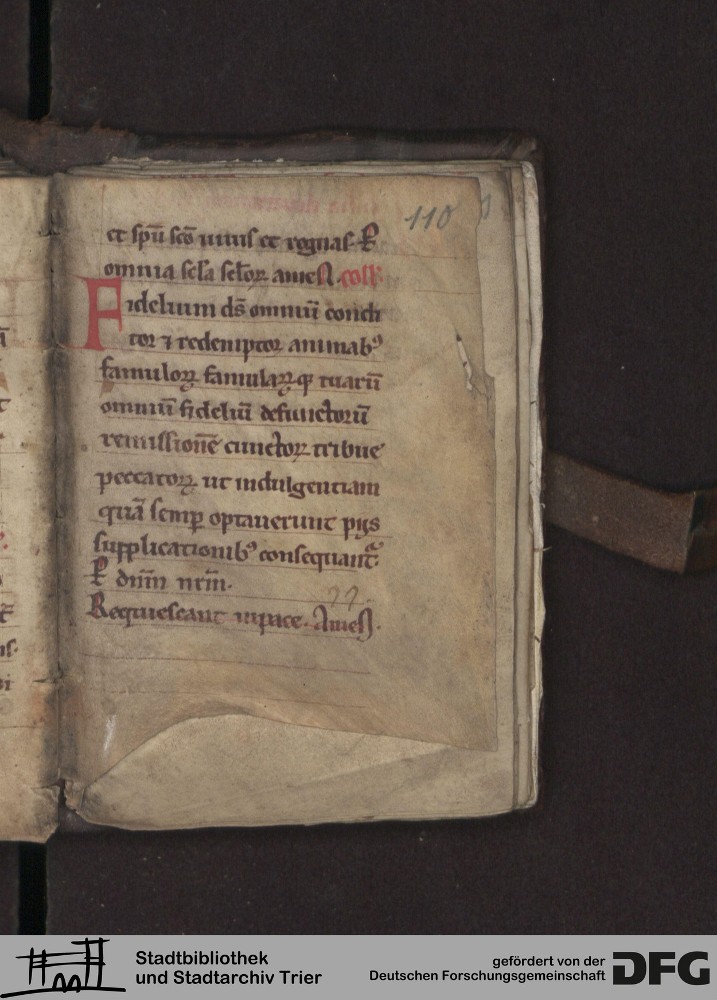 110
et spū scō viuis et regnas. P
omnia sc̄la sc̄lor̄ ameN. coll̄.
Fidelium ds̄ omniū condi
tor ⁊ redemptor animabꝰ
famuloꝝ famulaꝝq̄ tuarū
omniū fideliū defunctorū
remissionē cunctoꝝ tribue
peccatoꝝ ut indulgentiam
quā semꝑ optauerunt pijs
supplicationibꝰ consequant᷑.
P dn̄m nr̄m.
Requiescant inpace. Amen.
Stadtbibliothek
und Stadtarchiv Trier
gefördert von der
Deutschen Forschungsgemeinschaft
DFG